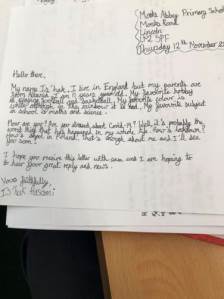 Monks Abbey Primary School
Monks Road
Lincoln
LN2 5PF
Thursday 12th November
Hello there,
My name is I live in England but my parents are
from I am years year old. My favorite hobby
is playing football and basketball. My favorite colour is
although in the rainbow it is red. My favourite subject
in school is maths and science.
How are you? Are you stressed about Covid-19? Well, it's probably the
worst thing that has happened in my whole life. How is lockdown?
How is school in Poland. That's enough about me and I'll see
you soon!
I hope you receive this letter with care and I am hoping to
to hear your great reply and news.
Yours faithfully,